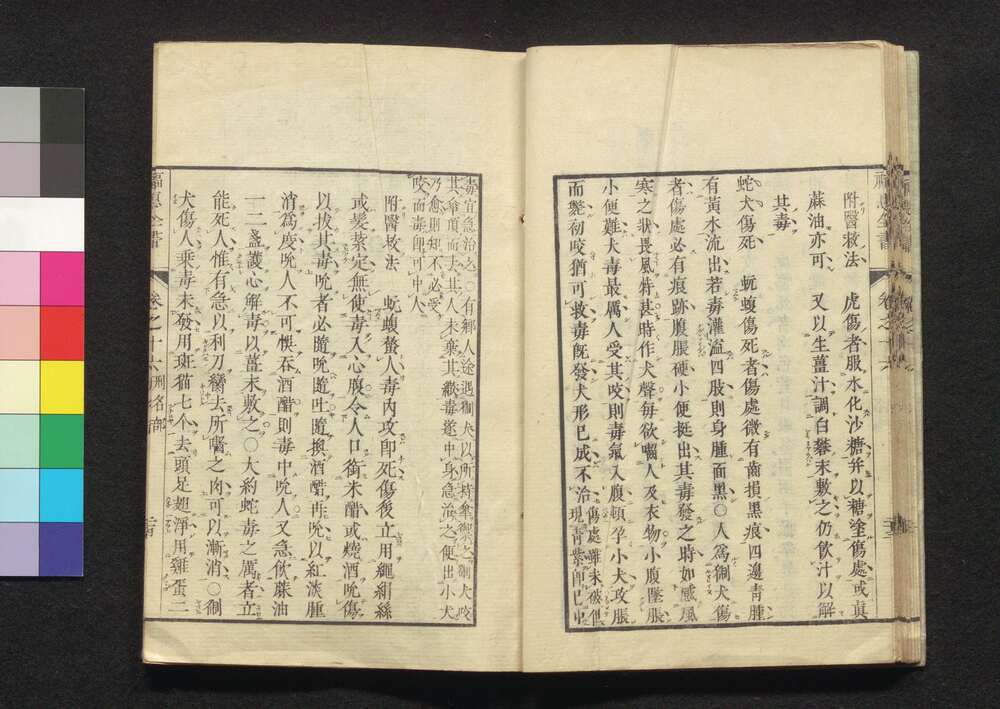 附醫救法　虎傷者服水化沙糖并以糖塗傷處或眞
蔴油亦可　又以生薑汁調白礬末敷之仍飲汁以解
其毒
蛇犬傷死　蚖蝮傷死者傷處微有齒損黑痕四邊青腫
有黃水流出若毒灌溢四肢則身腫面黑〇人爲猘犬傷
者傷處必有痕跡腹脹硬小便挺出其毒發之時如感風
寒之狀畏風特甚時作犬聲每欲嚙人及衣物小腹墜脹
小便難犬毒最厲人受其咬則毒氣入腹頓孕小犬攻脹
而斃初咬猶可救毒旣發犬形已成不治傷處雖未破但
現青紫卽已中
毒宜急治之〇有鄉人途遇猘犬以所持傘禦之猘犬咬
其傘頂而去其人未棄其歉毒遂中身急治之便出小犬
乃愈則知不必受
咬而毒卽可中人
附醫救法　蚖蝮螫人毒內攻卽死傷後立用繩絹絲
或髮紮定無使毒入心腹令人口銜米醋或燒酒吮傷
以拔其毒吮者必隨吮隨吐隨換酒醋再吮以紅淡腫
消爲度吮人不可悞吞酒醋則毒中吮人又急飲蔴油
一二盞護心解毒以薑末敷之〇大約蛇毒之厲者立
能死人惟有急以利刃臠去所嚙之肉可以漸消〇猘
犬傷人乘毒未發用斑猫七个去頭足翅淨用雞蛋二
福惠全書
卷之十六
刑名部